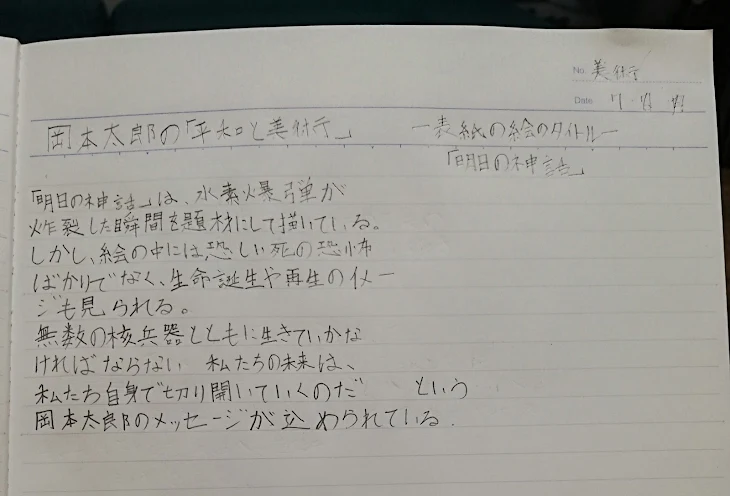 No. 美術
Date
岡本太郎の「平和と美術」 ー表紙の絵のタイトルー
「明日の神話」
「明日の神話」は、水素爆弾が
炸裂した瞬間を題材にして描いている。
しかし、絵の中には恐しい死の恐怖
ばかりでなく、生命誕生や再生のイメー
ジも見られる。
無数の核兵器とともに生きていかな
ければならない 私たちの未来は、
私たち自身で切り開いていくのだ という
岡本太郎のメッセージが込められている.